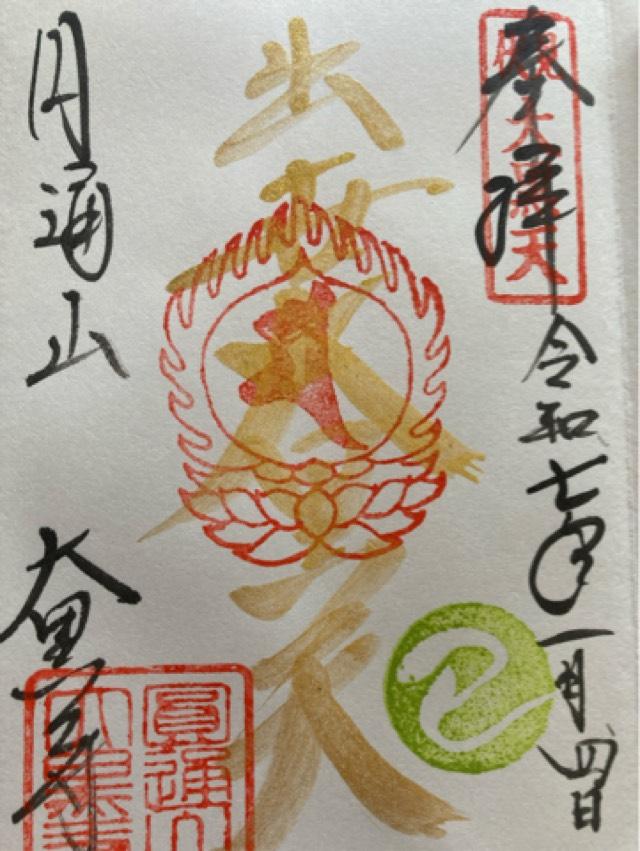 奉拝
令和七年一月四日
大黒天
出
天
円通山
大黒寺
圓通山
大黒寺